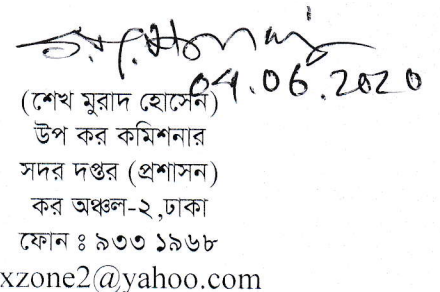 04.06.2020
(শেখ মুরাদ হোসেন)
উপ কর কমিশনার
সদর দপ্তর (প্রশাসন)
কর অঞ্চল-২,ঢাকা
ফোন ঃ ৯৩৩ ১৯৬৮
xzone2@yahoo.com